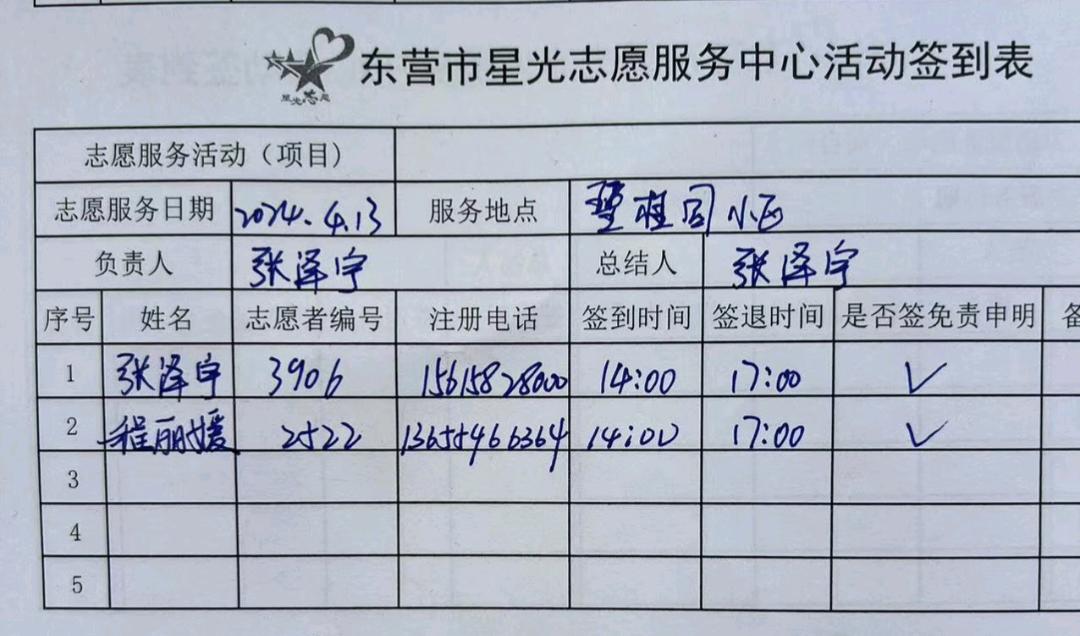 星光志愿
东营市星光志愿服务中心活动签到表
志愿服务活动（项目）
志愿服务日期 2024.4.13 服务地点 桂园小区
负责人 张泽宇 总结人 张泽宇
序号 姓名 志愿者编号 注册电话 签到时间 签退时间 是否签免责申明 备
1 张泽宇 3906 15615828000 14:00 17:00 ✓
2 程丽媛 2522 13655466364 14:00 17:00 ✓
3
4
5